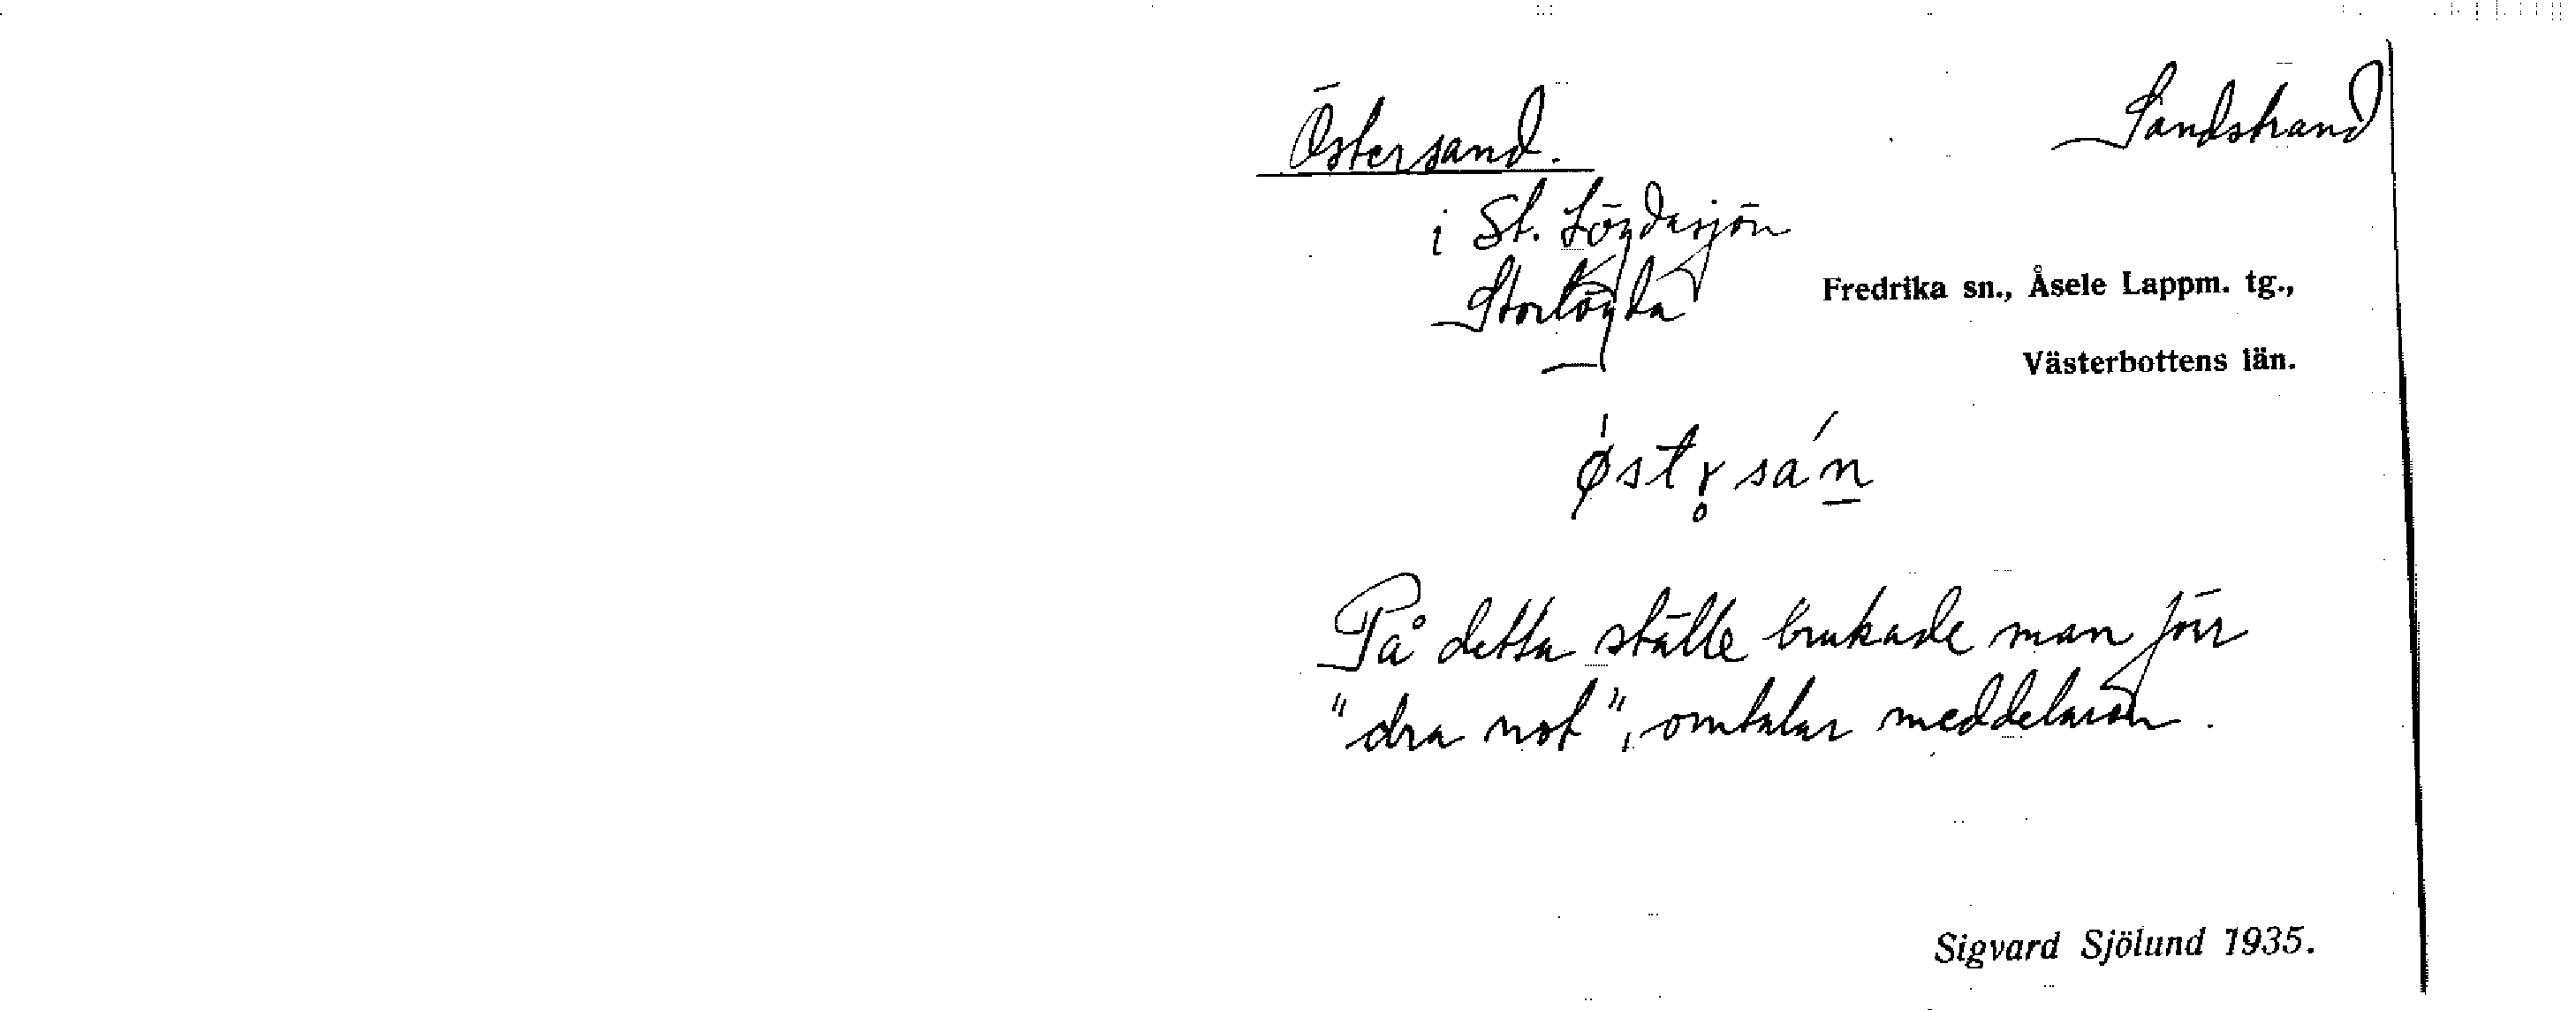 Östersand. Sandstrand
i St. Lögdasjön
Storlögda
Fredrika sn., Åsele Lappm. tg.,
Västerbottens län.
På detta ställe brukade man förr
"dra not", omtalar meddelaren.
Sigvard Sjölund 1935.